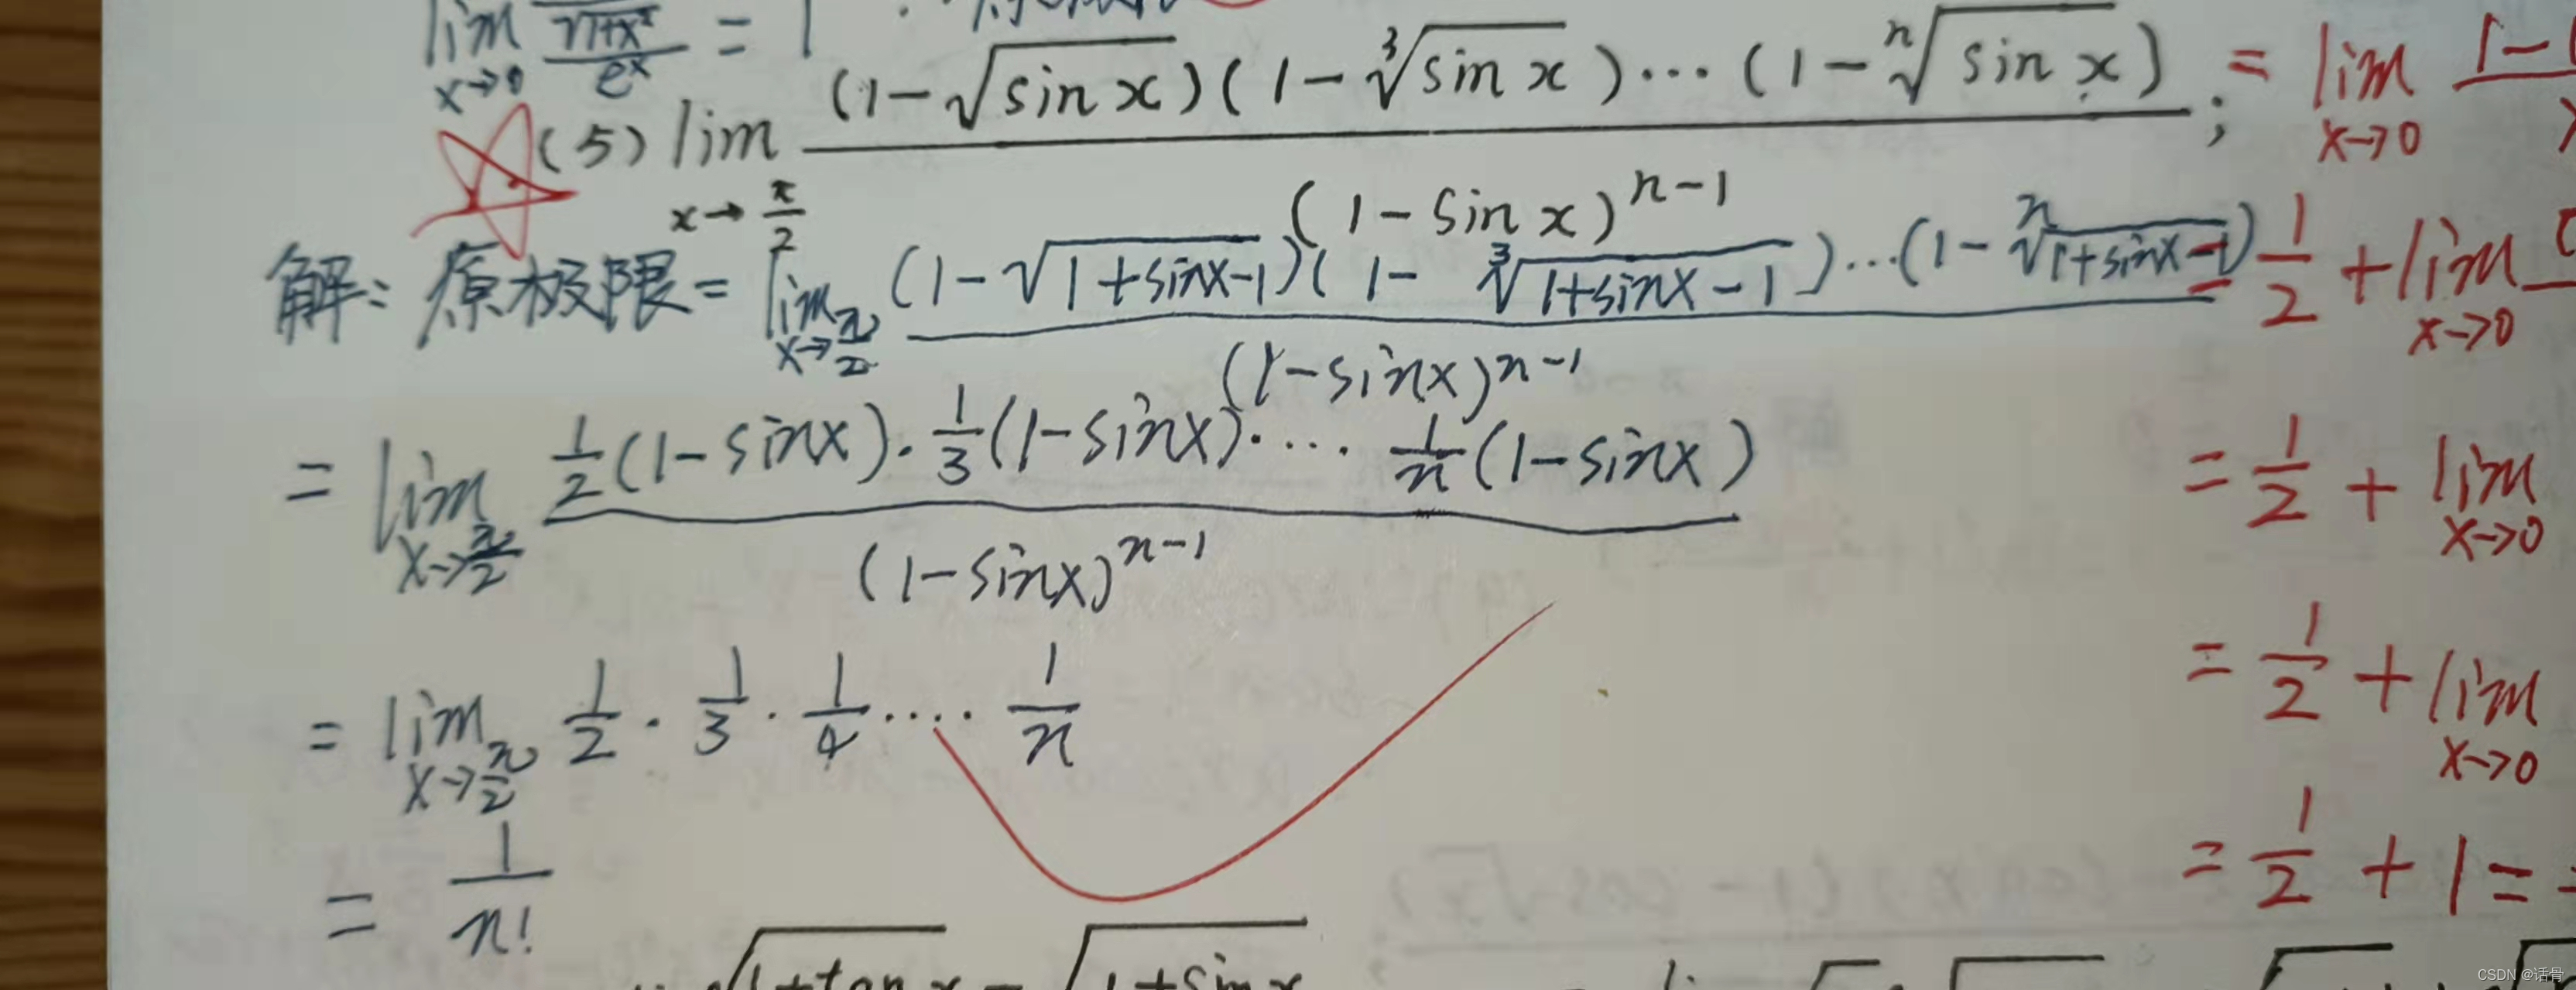 lim x→0 √1+x² / eˣ = 1
(5) lim x→π/2 (1-√sin x)(1-³√sin x)⋯(1-ⁿ√sin x) / (1-sin x)ⁿ⁻¹ ;
解: 原极限 = lim x→π/2 (1-√1+sinx-1)(1-³√1+sinx-1)…(1-ⁿ√1+sinx-1) / (1-sinx)ⁿ⁻¹
= lim x→π/2 1/2(1-sinx)·1/3(1-sinx)·…·1/n(1-sinx) / (1-sinx)ⁿ⁻¹
= lim x→π/2 1/2·1/3·1/4·…·1/n
= 1/n!
√1+tan x - √1+sin x
= lim x→0 1-
= 1/2 + lim x→0
= 1/2 + lim x→0
= 1/2 + lim x→0
= 1/2 + 1 =
CSDN @话骨